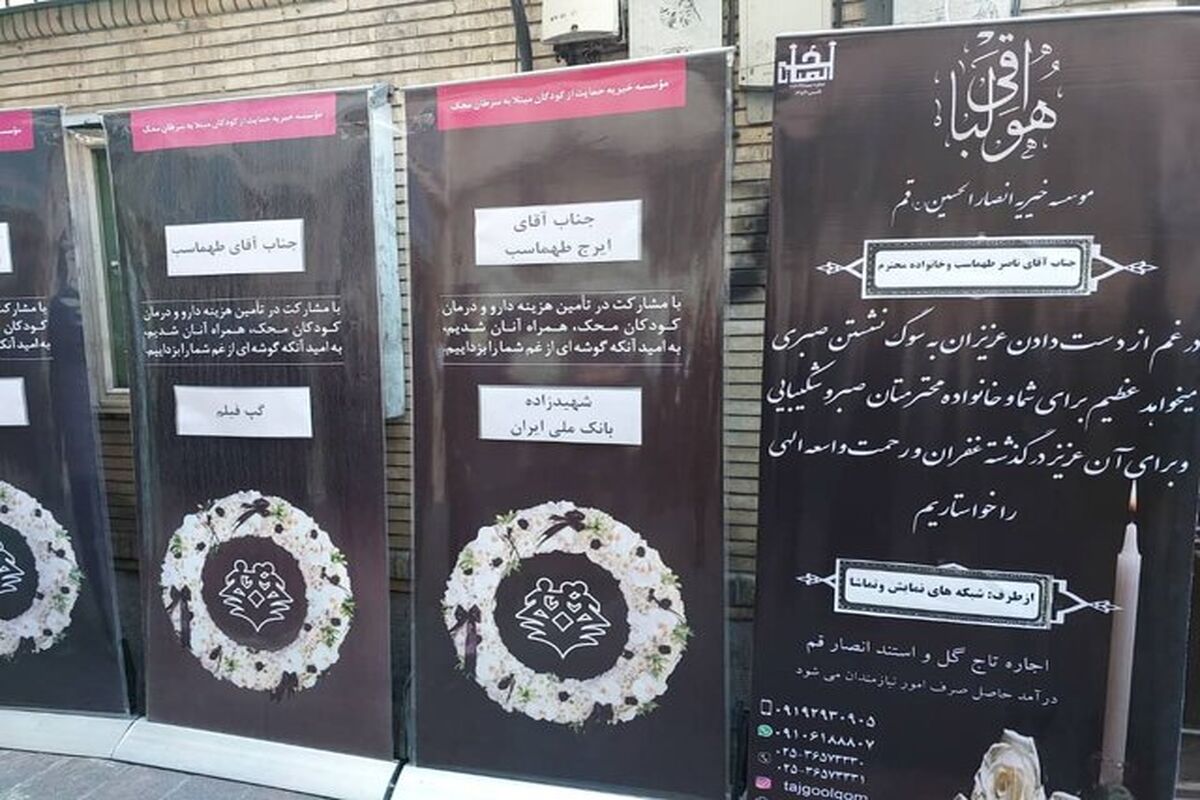 انصار الحسین
هو الباقی
موسسه خیریه انصار الحسین (ع) قم
جناب آقای ناصر طهماسب و خانواده محترم
در غم از دست دادن عزیزان به سوک نشستن صبری
میخواهد عظیم برای شما و خانواده محترمتان صبر و شکیبایی
و برای آن عزیز درگذشته غفران و رحمت واسعه الهی
را خواستاریم
از طرف: شبکه های نمایش و تماشا
اجاره تاج گل و استند انصار قم
درآمد حاصل صرف امور نیازمندان می شود
۰۹۱۹۲۹۳۰۹۰۵
۰۹۱۰۶۱۸۸۸۰۷
۰۲۵-۳۶۵۷۳۳۳۰
۰۲۵-۳۶۵۷۳۳۳۱
tajgoolqom
مؤسسه خیریه حمایت از کودکان مبتلا به سرطان محک
جناب آقای
ایرج طهماسب
با مشارکت در تأمین هزینه دارو و درمان
کودکان محک، همراه آنان شدیم،
به امید آنکه گوشه ای از غم شما را بزداییم.
شهیدزاده
بانک ملی ایران
مؤسسه خیریه حمایت از کودکان مبتلا به سرطان محک
جناب آقای طهماسب
با مشارکت در تأمین هزینه دارو و درمان
کودکان محک، همراه آنان شدیم،
به امید آنکه گوشه ای از غم شما را بزداییم.
گپ فیلم
مؤسسه
با مشارکت در
کودکان محک
به امید آنکه